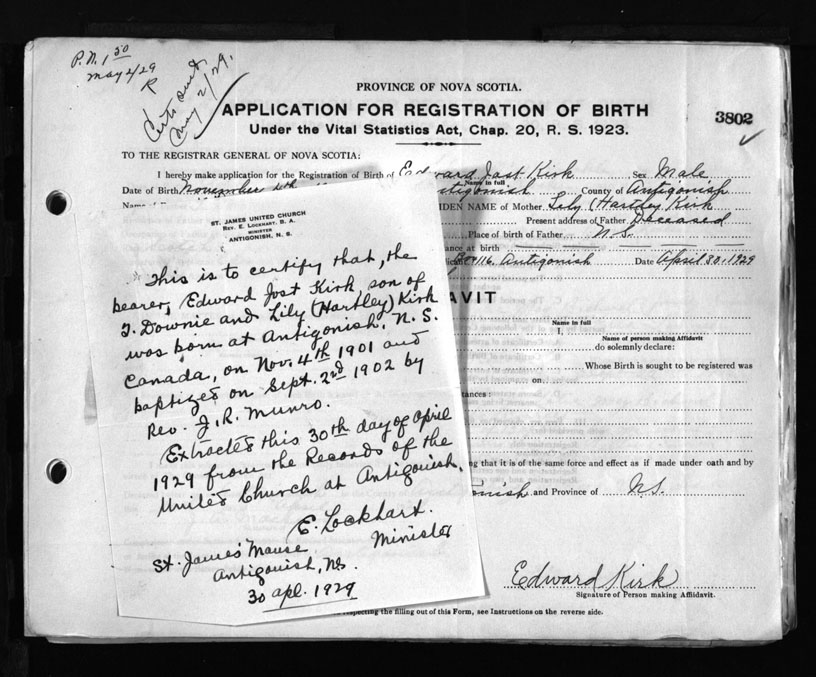 P.N. 1 50
May 2/29
R
Certs sent
May 2/29.
PROVINCE OF NOVA SCOTIA.
APPLICATION FOR REGISTRATION OF BIRTH
Under the Vital Statistics Act, Chap. 20, R. S. 1923.
3802
TO THE REGISTRAR GENERAL OF NOVA SCOTIA:
I hereby make application for the Registration of Birth of Edward Jost Kirk Sex Male
Name in full
Date of Birth November 4th Antigonish County of Antigonish
Name MAIDEN NAME of Mother Lily (Hartley) Kirk
Present address of Father Deceased
Place of birth of Father N.S.
at birth
Box 116. Antigonish Date April 30, 1929
AVIT
Name in full
I,
Name of person making Affidavit
do solemnly declare:
Whose Birth is sought to be registered was
on
tances:
ing that it is of the same force and effect as if made under oath and by
and Province of N.S.
Edward Kirk
Signature of Person making Affidavit.
respecting the filling out of this Form, see Instructions on the reverse side.
ST. JAMES UNITED CHURCH
REV. E. LOCKHART. B. A.
MINISTER
ANTIGONISH, N. S.
This is to certify that, the
bearer, Edward Jost Kirk, son of
T. Downie and Lily (Hartley) Kirk
was born at Antigonish, N.S.
Canada, on Nov. 4th 1901 and
baptized on Sept. 2nd 1902 by
Rev. J. R. Munro.
Extracted this 30th day of April
1929 from the Records of the
United Church at Antigonish.
E. Lockhart.
Minister
St. James' Manse
Antigonish, N.S.
30 Apl. 1929